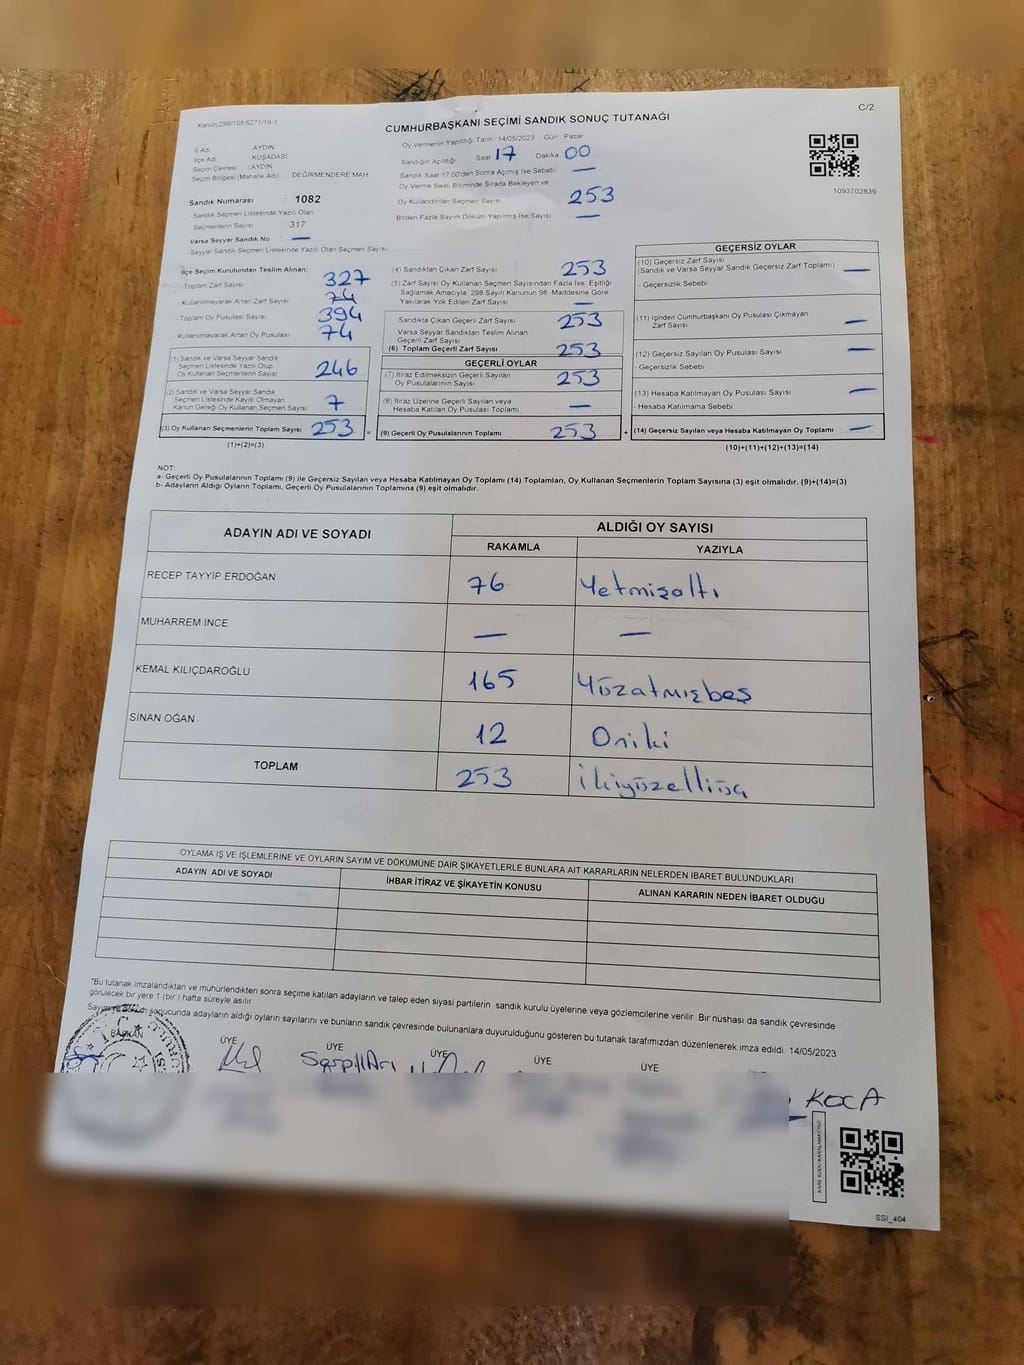 C/2
Kanun:298/105;6271/18-1
CUMHURBAŞKANI SEÇİMİ SANDIK SONUÇ TUTANAĞI
İl Adı : AYDIN
İlçe Adı : KUŞADASI
Seçim Çevresi : AYDIN
Seçim Bölgesi (Mahalle Adı) : DEĞİRMENDERE MAH.
Sandık Numarası : 1082
- Sandık Seçmen Listesinde Yazılı Olan
Seçmenlerin Sayısı : 317
Varsa Seyyar Sandık No : —
- Seyyar Sandık Seçmen Listesinde Yazılı Olan Seçmen Sayısı
Oy Vermenin Yapıldığı Tarih : 14/05/2023 Gün : Pazar
Sandığın Açıldığı Saat 17 Dakika 00
Sandık Saat 17:00'den Sonra Açılmış İse Sebebi —
Oy Verme Saati Bitiminde Sırada Bekleyen ve
Oy Kullandırılan Seçmen Sayısı 253
Birden Fazla Sayım Döküm Yapılmış İse Sayısı —
1093702839
İlçe Seçim Kurulundan Teslim Alınan;
- Toplam Zarf Sayısı 327
- Kullanılmayarak Artan Zarf Sayısı 74
- Toplam Oy Pusulası Sayısı 394
- Kullanılmayarak Artan Oy Pusulası 74
(1) Sandık ve Varsa Seyyar Sandık
Seçmen Listesinde Yazılı Olup
Oy Kullanan Seçmenlerin Sayısı 246
(2) Sandık ve Varsa Seyyar Sandık
Seçmen Listesinde Kayıtlı Olmayan
Kanun Gereği Oy Kullanan Seçmen Sayısı 7
(3) Oy Kullanan Seçmenlerin Toplam Sayısı 253
(1)+(2)=(3)
(4) Sandıktan Çıkan Zarf Sayısı 253
(5) Zarf Sayısı Oy Kullanan Seçmen Sayısından Fazla İse, Eşitliği
Sağlamak Amacıyla; 298 Sayılı Kanunun 98. Maddesine Göre
Yakılarak Yok Edilen Zarf Sayısı —
Sandıkta Çıkan Geçerli Zarf Sayısı 253
Varsa Seyyar Sandıktan Teslim Alınan
Geçerli Zarf Sayısı
(6) Toplam Geçerli Zarf Sayısı 253
GEÇERLİ OYLAR
(7) İtiraz Edilmeksizin Geçerli Sayılan
Oy Pusulalarının Sayısı 253
(8) İtiraz Üzerine Geçerli Sayılan veya
Hesaba Katılan Oy Pusulası Toplamı —
(9) Geçerli Oy Pusulalarının Toplamı 253
GEÇERSİZ OYLAR
(10) Geçersiz Zarf Sayısı
(Sandık ve Varsa Seyyar Sandık Geçersiz Zarf Toplamı) —
- Geçersizlik Sebebi
(11) İçinden Cumhurbaşkanı Oy Pusulası Çıkmayan
Zarf Sayısı —
(12) Geçersiz Sayılan Oy Pusulası Sayısı —
- Geçersizlik Sebebi
(13) Hesaba Katılmayan Oy Pusulası Sayısı —
- Hesaba Katılmama Sebebi
(14) Geçersiz Sayılan veya Hesaba Katılmayan Oy Toplamı —
(10)+(11)+(12)+(13)=(14)
NOT:
a- Geçerli Oy Pusulalarının Toplamı (9) ile Geçersiz Sayılan veya Hesaba Katılmayan Oy Toplamı (14) Toplamları, Oy Kullanan Seçmenlerin Toplam Sayısına (3) eşit olmalıdır. (9)+(14)=(3)
b- Adayların Aldığı Oyların Toplamı, Geçerli Oy Pusulalarının Toplamına (9) eşit olmalıdır.
ADAYIN ADI VE SOYADI ALDIĞI OY SAYISI
RAKAMLA YAZIYLA
RECEP TAYYİP ERDOĞAN 76 Yetmişaltı
MUHARREM İNCE — —
KEMAL KILIÇDAROĞLU 165 Yüzatmışbeş
SİNAN OĞAN 12 Oniki
TOPLAM 253 ikiyüzelliüç
OYLAMA İŞ VE İŞLEMLERİNE VE OYLARIN SAYIM VE DÖKÜMÜNE DAİR ŞİKAYETLERLE BUNLARA AİT KARARLARIN NELERDEN İBARET BULUNDUKLARI
ADAYIN ADI VE SOYADI İHBAR İTİRAZ VE ŞİKAYETİN KONUSU ALINAN KARARIN NEDEN İBARET OLDUĞU
*Bu tutanak imzalandıktan ve mühürlendikten sonra seçime katılan adayların ve talep eden siyasi partilerin sandık kurulu üyelerine veya gözlemcilerine verilir. Bir nüshası da sandık çevresinde
görülecek bir yere 1 (bir) hafta süreyle asılır.
Sayım ve döküm sonucunda adayların aldığı oyların sayılarını ve bunların sandık çevresinde bulunanlara duyurulduğunu gösteren bu tutanak tarafımızdan düzenlenerek imza edildi. 14/05/2023
BAŞKAN ÜYE ÜYE ÜYE ÜYE ÜYE
KOCA
KARE KODU KARALAMAYINIZ!
SSI_404